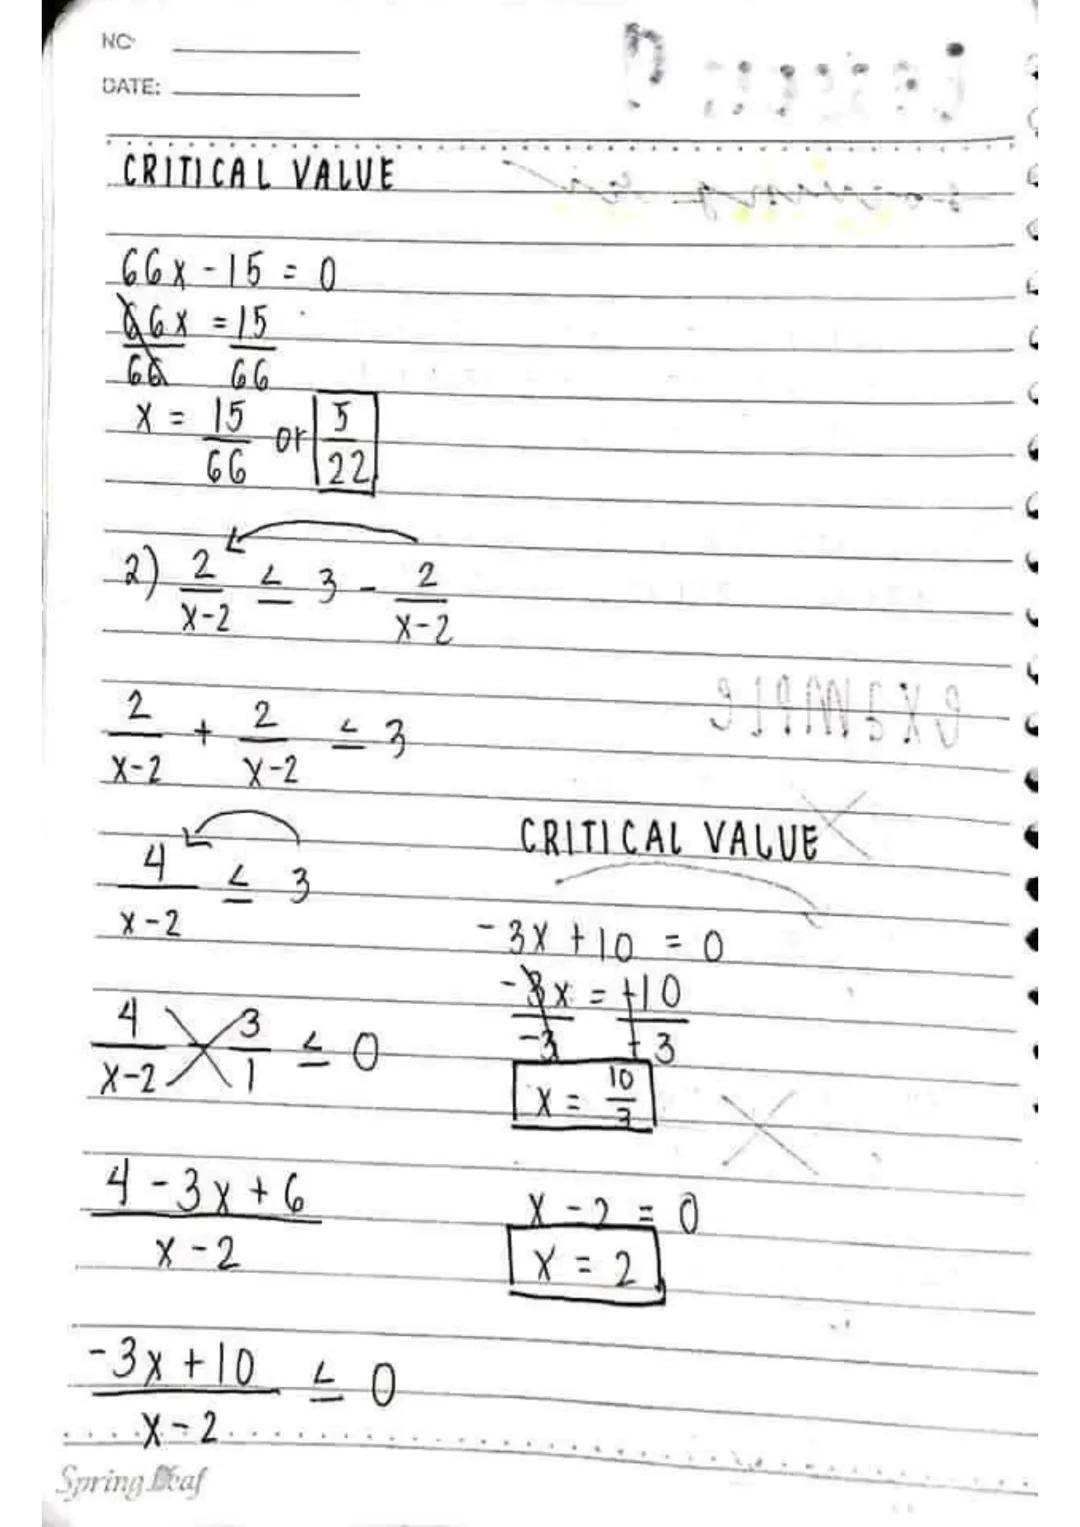 NO
DATE:
CRITICAL VALUE
66x - 15 = 0
66x = 15
66 66
x = 15 or 5
66 22
2) 2 ≤ 3 - 2
x-2 x-2
2 + 2 ≤ 3
x-2 x-2
4 ≤ 3
x-2
4 3 ≤ 0
x-2 1
4 - 3x + 6
x - 2
-3x + 10 ≤ 0
x - 2
CRITICAL VALUE
-3x + 10 = 0
-3x = -10
-3 -3
x = 10
3
x - 2 = 0
x = 2
Spring Leaf